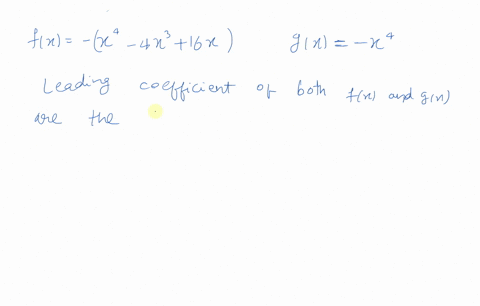 f(x) = -(x⁴ - 4x³ + 16x) g(x) = -x⁴
Leading coefficient of both f(x) and g(x)
are the